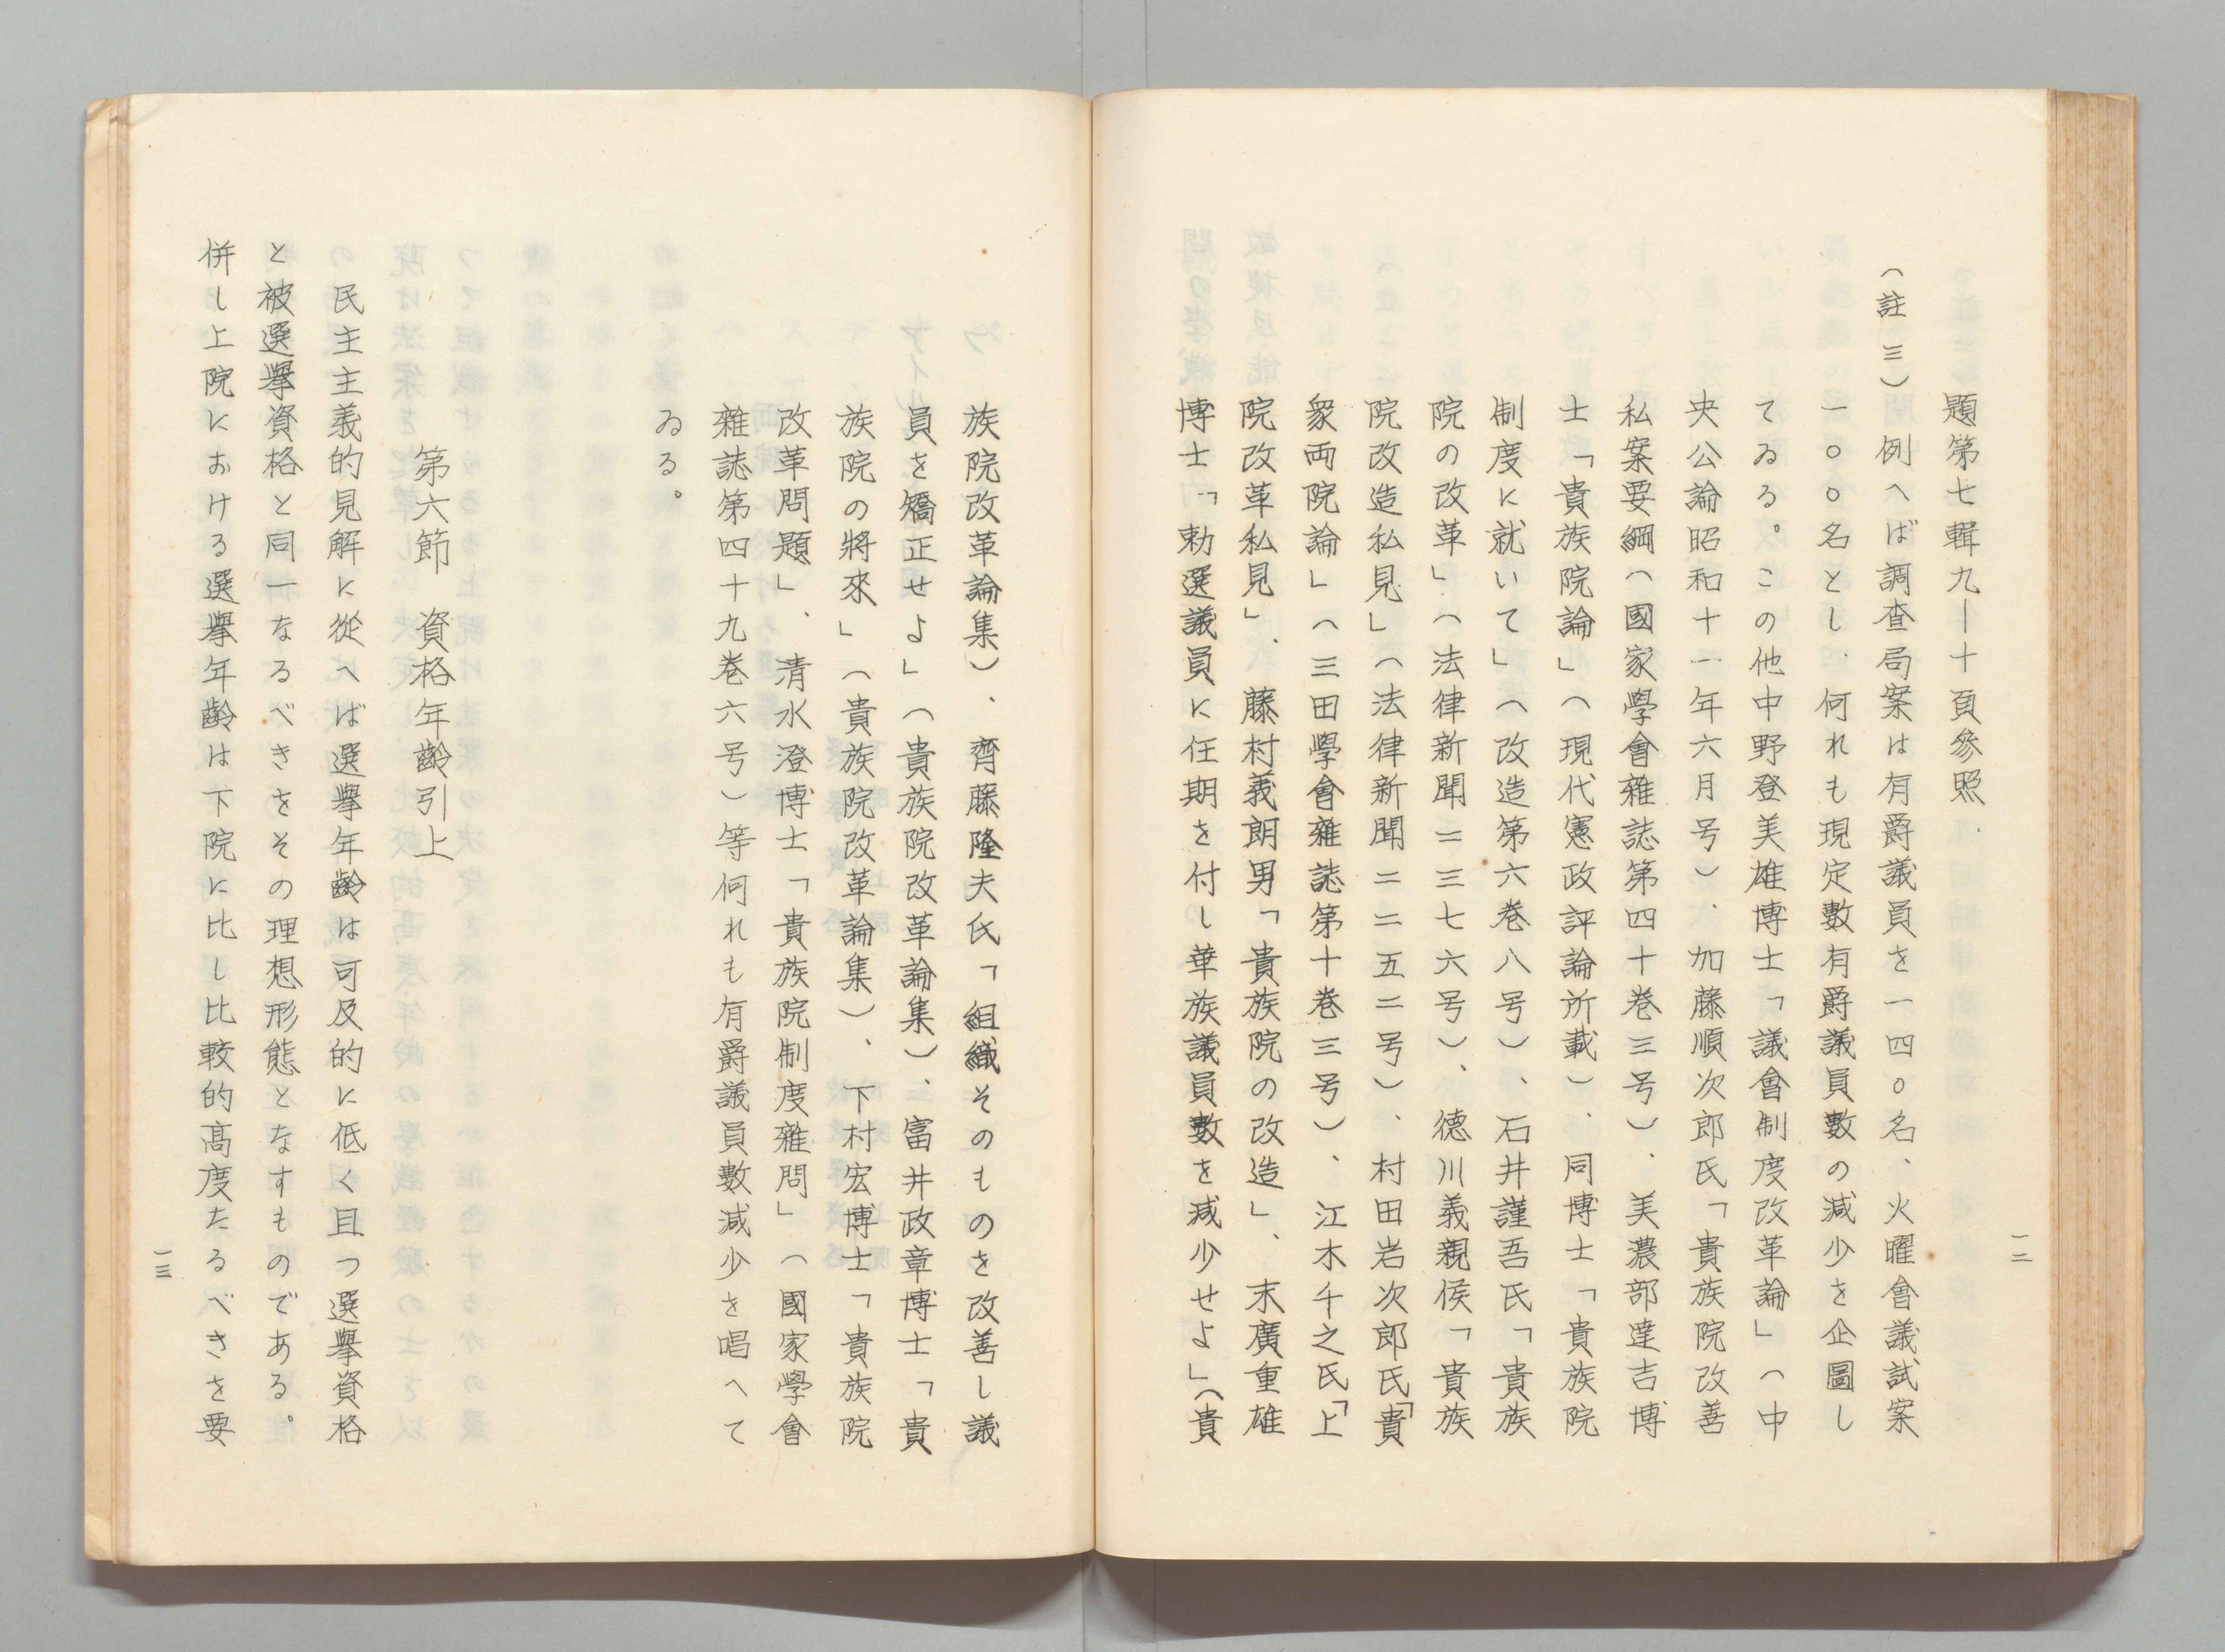 題第七輯九―十頁參照、
(註三)例へば調査局案は有爵議員を一四〇名、火曜會議試案
一〇〇名とし、何れも現定數有爵議員數の減少を企圖し
てゐる。この他中野登美雄博士「議會制度改革論」(中
央公論昭和十一年六月号)、加藤順次郎氏「貴族院改善
私案要綱(國家學會雜誌第四十巻三号)、美濃部達吉博
士「貴族院論」(現代憲政評論所載)、同博士「貴族院
制度に就いて」(改造第六巻八号)、石井謹吾氏「貴族
院の改革」(法律新聞二三七六号)、德川義親侯「貴族
院改造私見」(法律新聞二二五二号)、村田岩次郎氏「貴
衆両院論」(三田學會雜誌第十巻三号)、江木千之氏「上
院改革私見」、藤村義朗男「貴族院の改造」、末廣重雄
博士「勅選議員に任期を付し華族議員數を減少せよ」(貴
一二
族院改革論集)、齊藤隆夫氏「組織そのものを改善し議
員を矯正せよ」(貴族院改革論集)、富井政章博士「貴
族院の將來」(貴族院改革論集)、下村宏博士「貴族院
改革問題」、清水澄博士「貴族院制度雜問」(國家學會
雜誌第四十九巻六号)等何れも有爵議員數減少を唱へて
ゐる。
第六節　資格年齢引上
民主主義的見解に從へば選擧年齢は可及的に低く且つ選擧資格
と被選擧資格と同一なるべきをその理想形態となすものである。
併し上院における選擧年齢は下院に比し比較的高度たるべきを要
一三